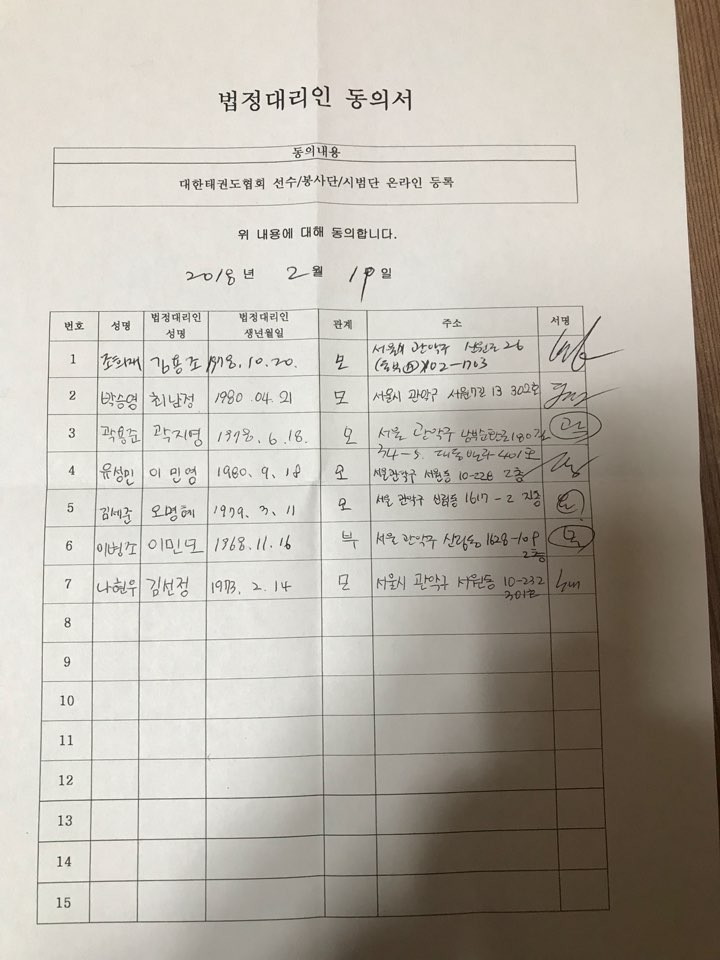 법정대리인 동의서
동의내용
대한태권도협회 선수/봉사단/시범단 온라인 등록
위 내용에 대해 동의합니다.
2018 년 2 월 19 일
번호 성명 법정대리인 성명 법정대리인 생년월일 관계 주소 서명
1 김용조 1978.10.20. 모 서울시 관악구 26
102-1703
2 박승영 최남정 1980.04.21 모 서울시 관악구 서원7길 13 302호
3 곽용준 곽지영 1978.6.18. 모 서울 관악구 남부순환로180길 곽
34-5. 401호
4 유성민 이민영 1980.9.18 모 서울관악구 서원동 10-228 2층
5 김세준 오명혜 1979.3.11 모 서울 관악구 신림동 1617-2 지층 오
6 이병조 이민모 1968.11.16 부 서울 관악구 신림동 1628-109
2층
7 나현우 김선정 1973.2.14 모 서울시 관악구 서원동 10-232
301호
8
9
10
11
12
13
14
15